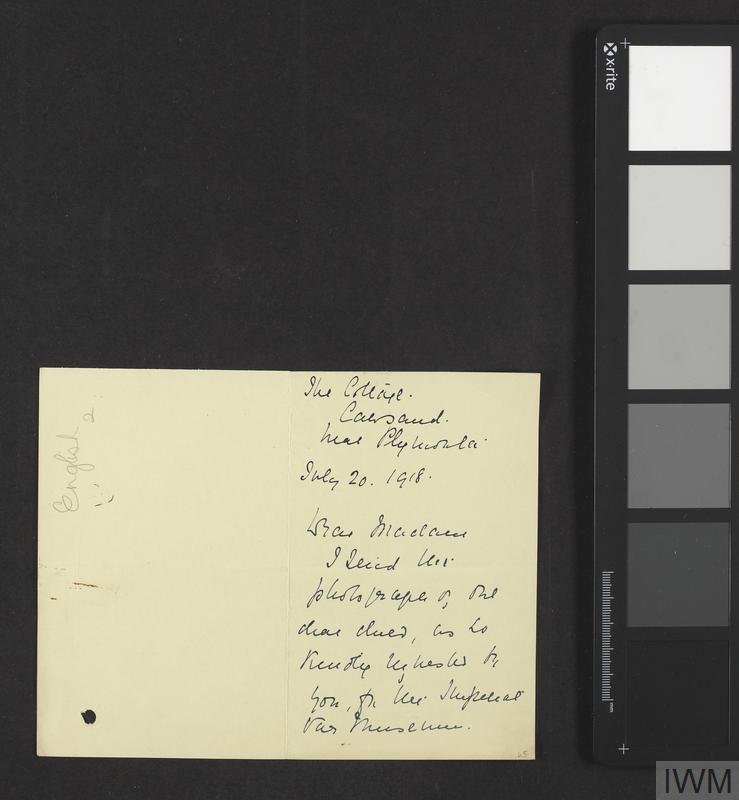 English 2
The Cottage.
Cawsand.
Near Plymouth
July 20. 1918.
Dear Madam
I send the
photograph of our
dear child, as so
kindly requested by
you, for the Imperial
War Museum.
x-rite
mm
IWM